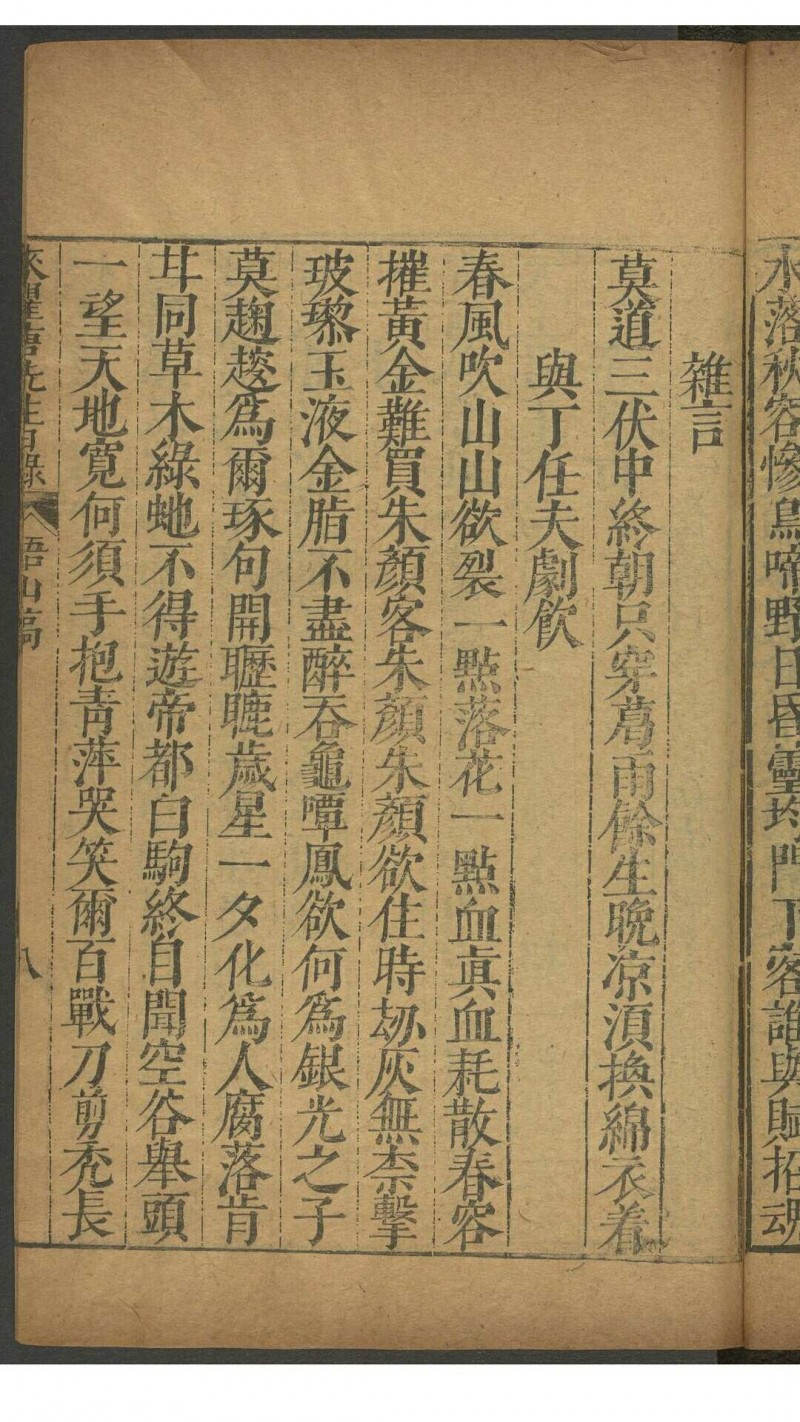 水落秋容慘烏啼野日昏靈均門下客誰與賦招魂
雜言
莫道三伏中終朝只穿葛雨餘生晚凉湏換綿衣着
與丁任夫劇飲
春風吹山山欲裂一點落花一點血真血耗散春容
摧黃金難買朱顏客朱顏朱顏欲住時刼灰無柰擊
玻瓈玉液金脂不盡醉吞龜噡鳳欲何為銀光之子
莫趜趚為爾琢句開瓑瓑歲星一夕化為人腐落肯
甘同草木綠虵不得遊帝都白駒終自聞空谷舉頭
一望天地寬何須手抱青萍哭笑爾百戰刀剪禿長
來瞿唐先生日錄
悟山稿
八